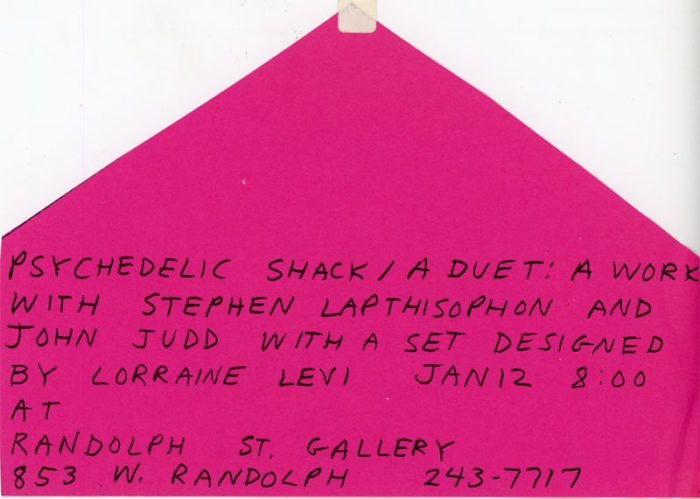 PSYCHEDELIC SHACK / A DUET: A WORK
WITH STEPHEN LAPTHISOPHON AND
JOHN JUDD WITH A SET DESIGNED
BY LORRAINE LEVI JAN 12 8:00
AT
RANDOLPH ST. GALLERY
853 W. RANDOLPH 243-7717